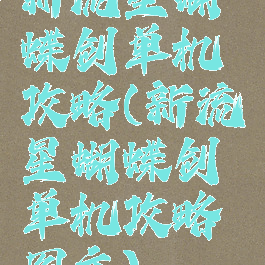 新流星蝴
蝶创单机
攻略(新流
星蝴蝶创
单机攻略